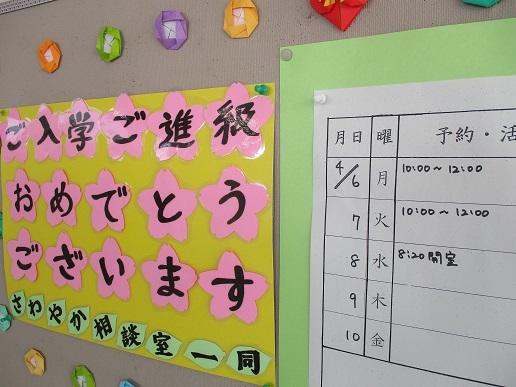 ご入学ご進級
おめでとう
ございます
さわやか相談室一同
月日 曜 予約・活
4/6 月 10:00~12:00
7 火 10:00~12:00
8 水 8:20開室
9 木
10 金